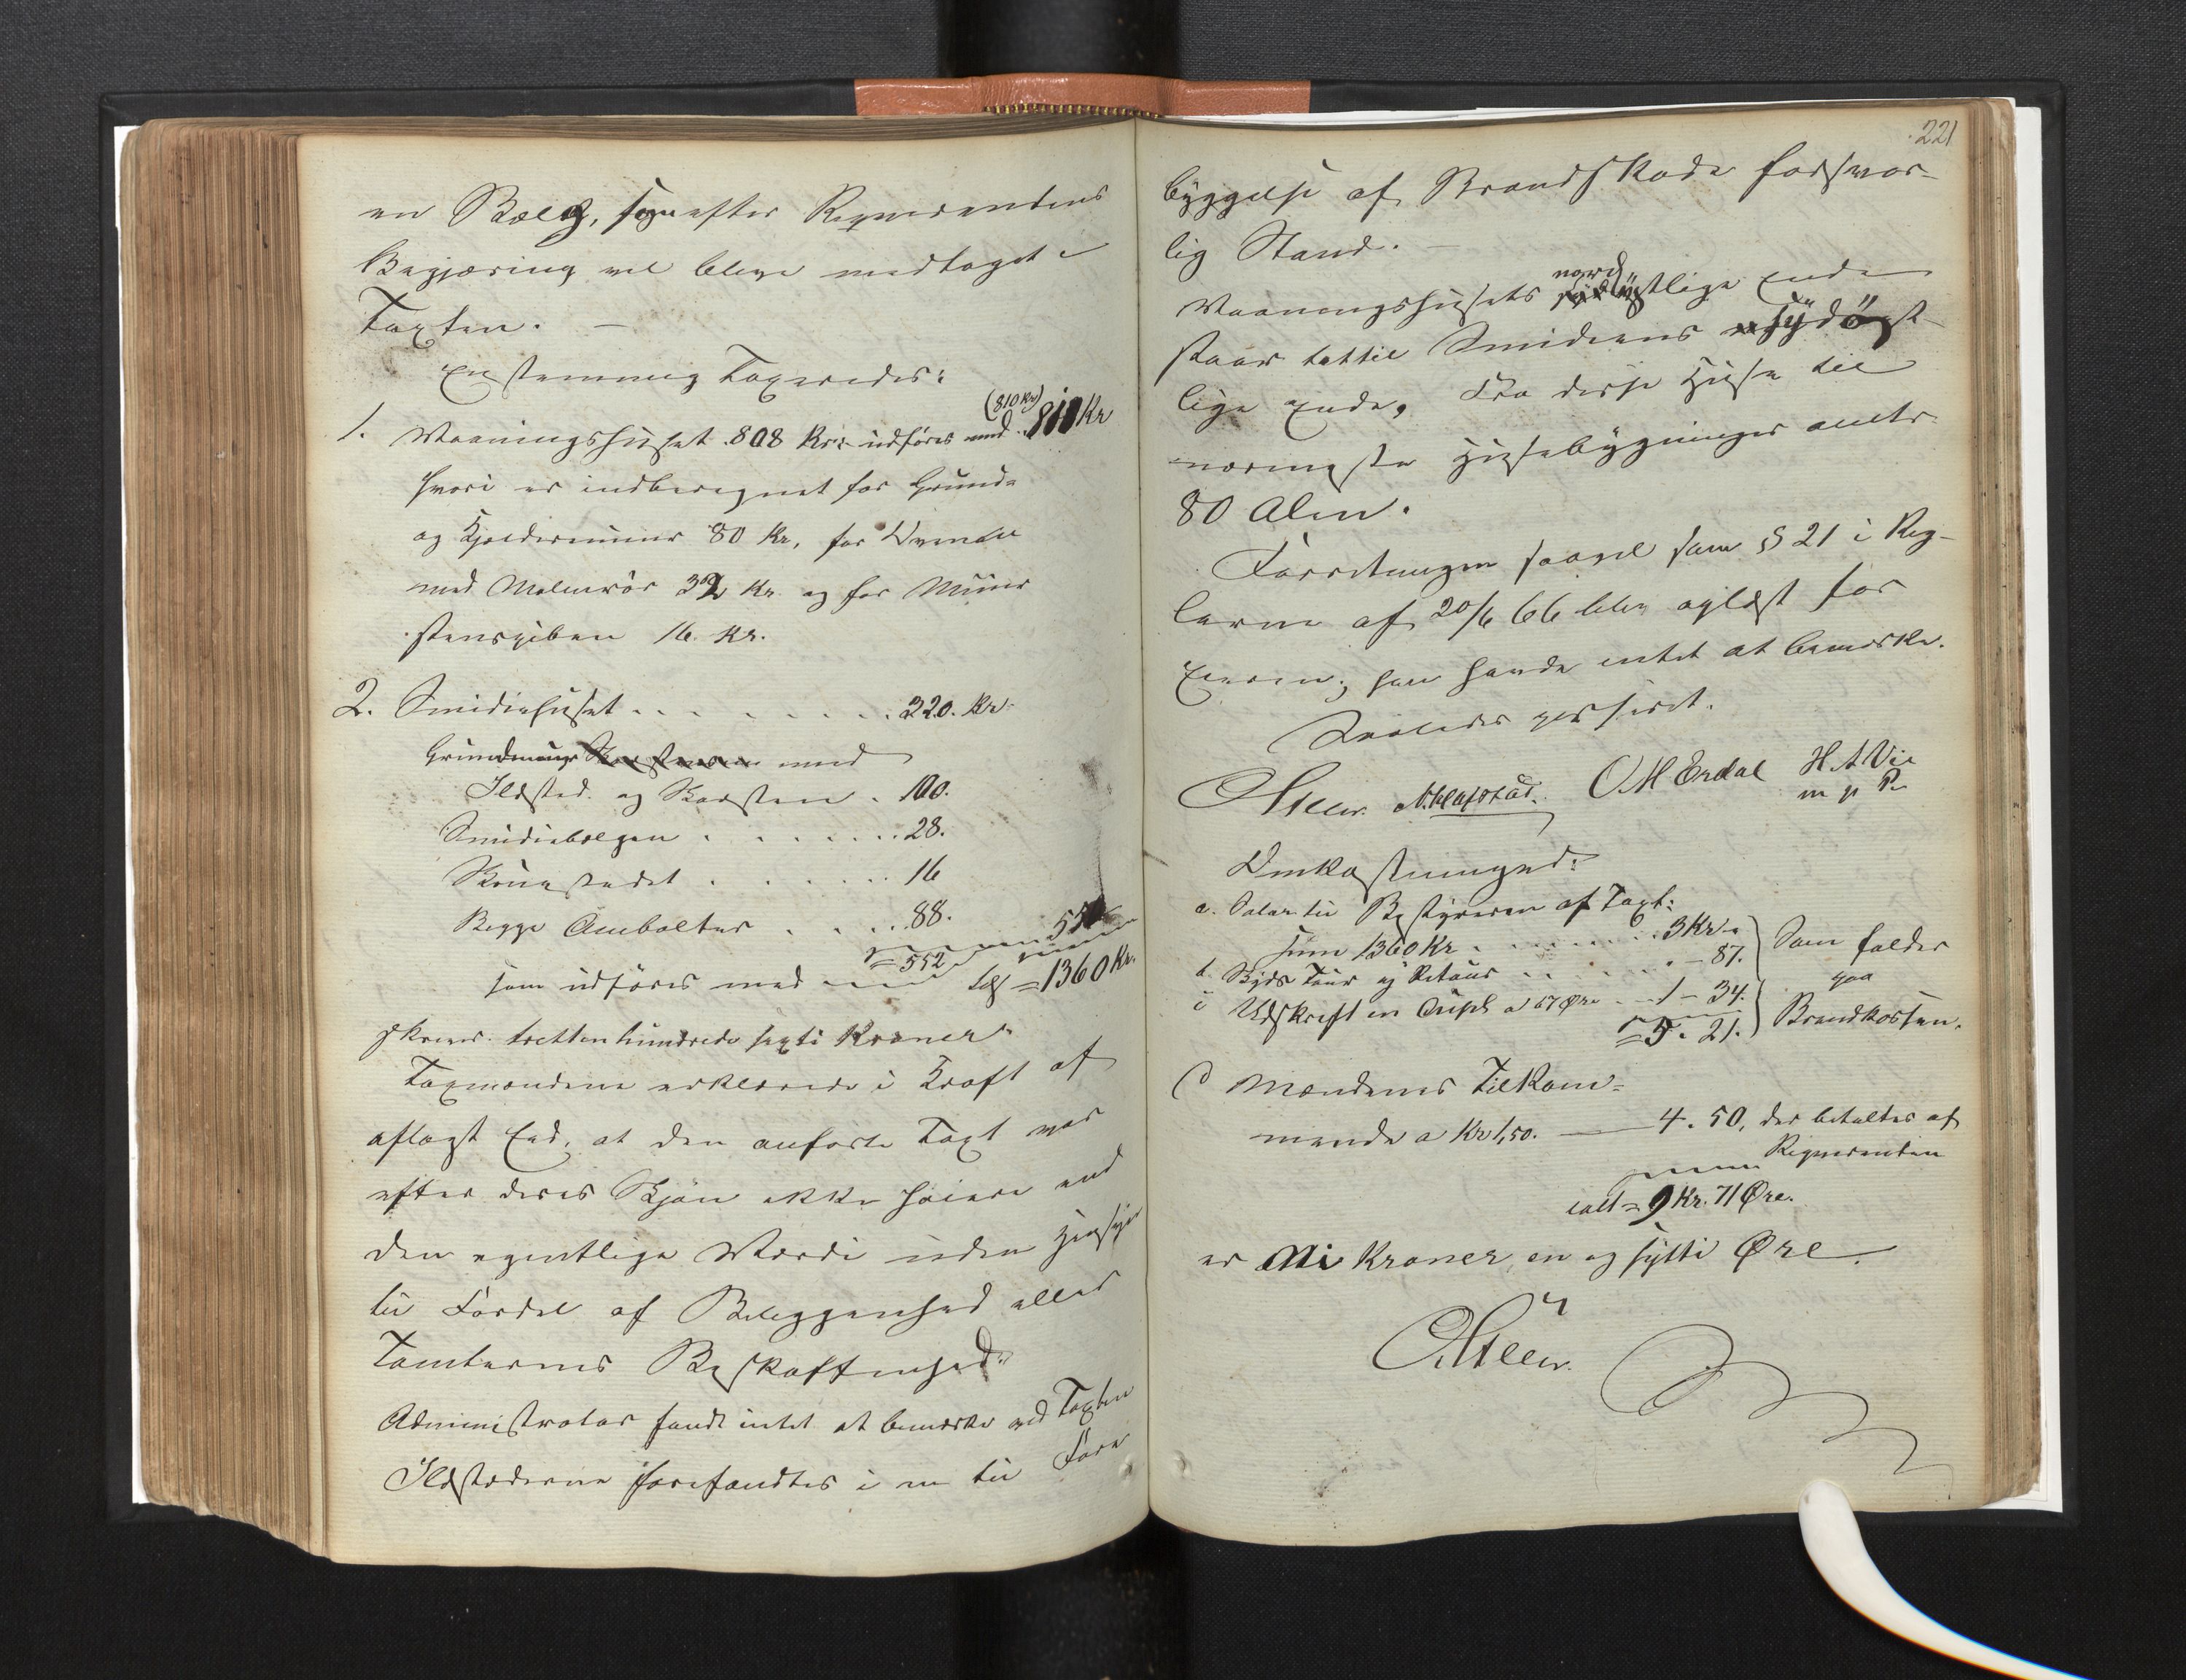 en Bælg, som efter Rqvirentens
Begjæring vil blive medtaget i
Taxten. —
Enstemmig Taxeredes:
1. Vaaningshuset 808 Kr: udføres med (810 Kr) 810 Kr
hvori er indberegnet for Grund=
og Kjælderemuur 80 Kr, for Ovnen
med Malmrør 32 Kr og for Muur
stenspiben 16 Kr.
2. Smidiehuset . . . . . . . . 220. Kr
Grundmuur med
Ildsted og Skorsten . 100.
Smidiebælgen . . . . . . . 28.
Skruestedet . . . . . . 16
Begge Ambolter . . . . 88.
= 552
som udføres med 550
Tils = 1360 Kr.
skriver tretten hundrede sexti Kroner
Taxmændene erklærede i Kraft af
aflagt Eed, at den anførte Taxt var
efter deres Skjøn ikke høiere end
den egentlige Værdi uden Hensyn
til Fordel af Beliggenhed eller
Tomternes Beskaffenhed.
Administrator fandt intet at bemærke ved Taxten
Ildstederne forefandtes i en til Fore
221
byggelse af Brandskade forsvar-
lig Stand. —
Vaaningshusets nordøstlige Ende
staar tættil Smidiens sydøst-
lige Ende. Fra disse Huse til
nærmeste Husebygninger autr.
80 Alen.
Forretningen saavel som § 21 i Reg-
lerne af 20/6 66 blev oplæst for
Eieren; han havde intet at bemærke.
Saaledes passeret.
O M Erdal H. A Vie
m p P
Omkostninger:
a. Salær til Bestyreren af Taxt:
sum 1360 Kr . . . . . . 3 Kr -
b. Skyds Tour og Retour . . . . - 87.
c Udskrift in dupl a 67 Øre . . 1 - 34.
= 5. 21.
Som falder
paa
Brandkassen.
d Mændenes Tilkom=
mende a Kr 1,50. — 4. 50, der betaltes af
Rqvirenten
ialt = 9 Kr. 71 Øre.
er Ni Kroner en og sytti Øre.